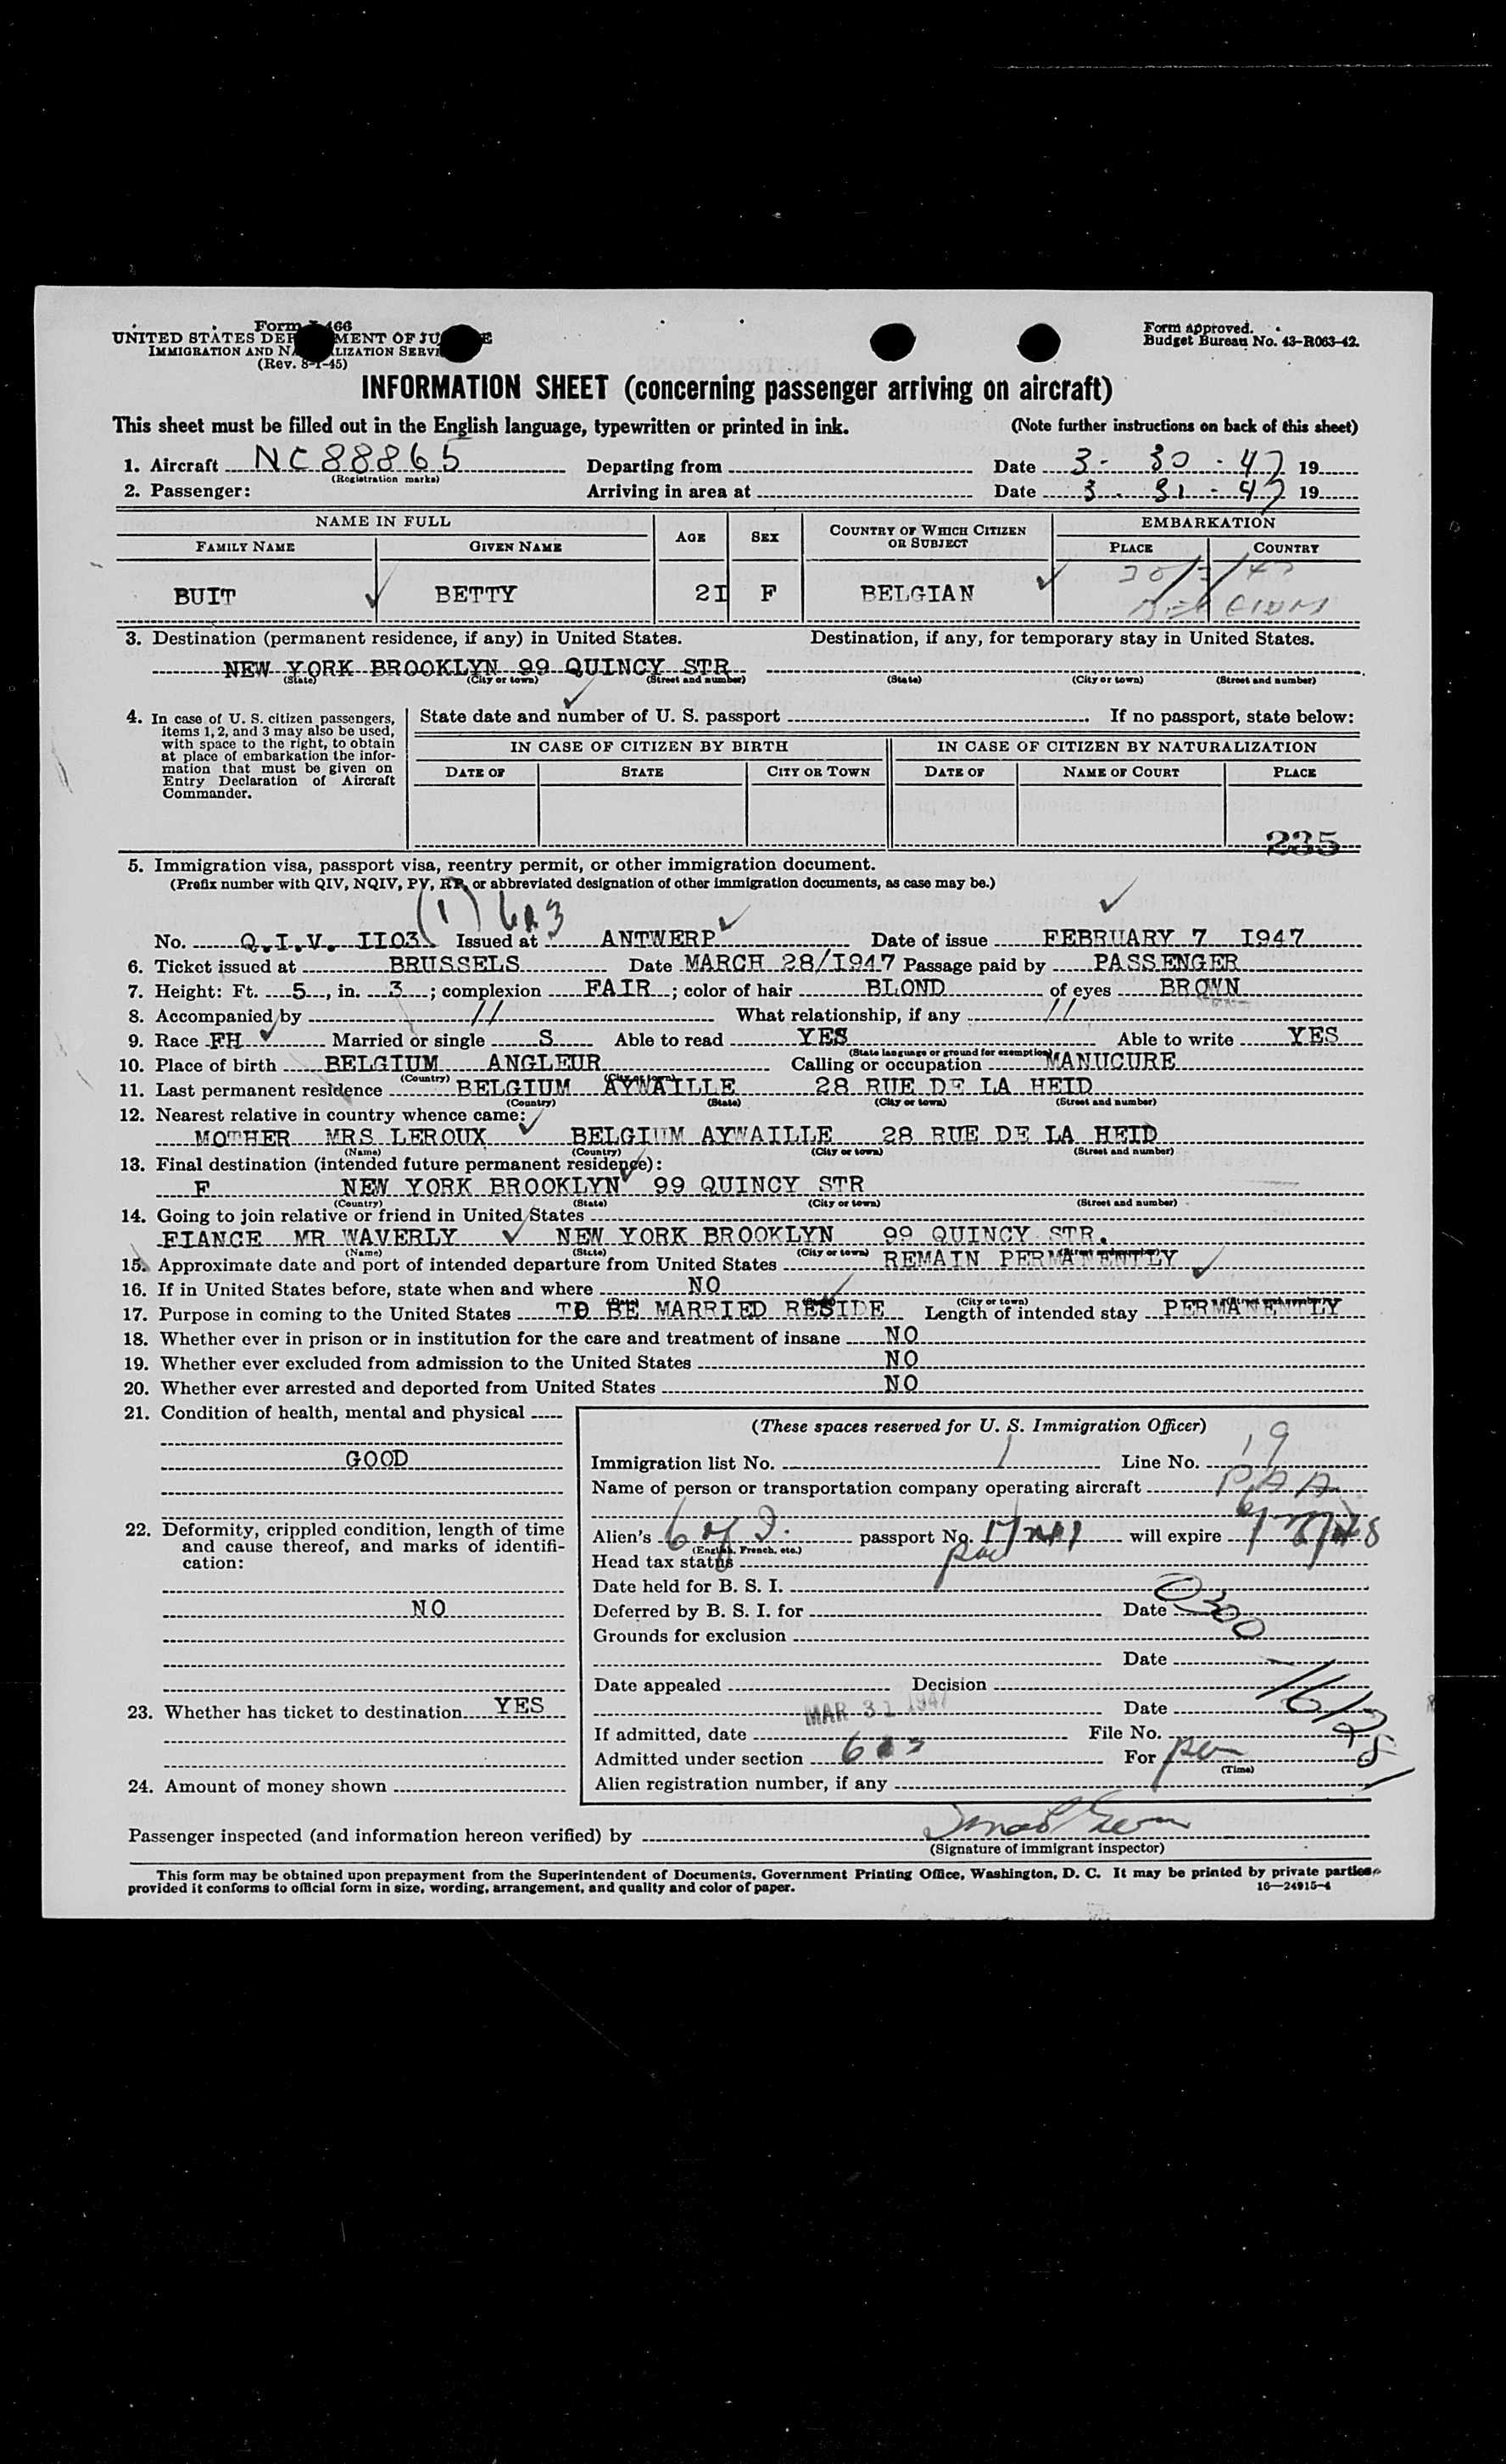 Form I-466
UNITED STATES DEPARTMENT OF JUSTICE
IMMIGRATION AND NATURALIZATION SERVICE
(Rev. 8-1-45)
Form approved.
Budget Bureau No. 43-R063-42.
INFORMATION SHEET (concerning passenger arriving on aircraft)
This sheet must be filled out in the English language, typewritten or printed in ink. (Note further instructions on back of this sheet)
1. Aircraft NC88865 Departing from Date 3-30-47 19
(Registration marks)
2. Passenger: Arriving in area at Date 3-31-47 19
NAME IN FULL AGE SEX COUNTRY OF WHICH CITIZEN OR SUBJECT EMBARKATION
FAMILY NAME GIVEN NAME PLACE COUNTRY
30/3/47
BUIT BETTY 2I F BELGIAN
BELGIUM
3. Destination (permanent residence, if any) in United States. Destination, if any, for temporary stay in United States.
NEW YORK BROOKLYN 99 QUINCY STR
(State) (City or town) (Street and number) (State) (City or town) (Street and number)
4. In case of U. S. citizen passengers, items 1, 2, and 3 may also be used, with space to the right, to obtain at place of embarkation the information that must be given on Entry Declaration of Aircraft Commander.
State date and number of U. S. passport If no passport, state below:
IN CASE OF CITIZEN BY BIRTH IN CASE OF CITIZEN BY NATURALIZATION
DATE OF STATE CITY OR TOWN DATE OF NAME OF COURT PLACE
235
5. Immigration visa, passport visa, reentry permit, or other immigration document.
(Prefix number with QIV, NQIV, PV, RP, or abbreviated designation of other immigration documents, as case may be.)
(1) 6a3
No. Q.I.V. II03 Issued at ANTWERP Date of issue FEBRUARY 7 I947
6. Ticket issued at BRUSSELS Date MARCH 28/I947 Passage paid by PASSENGER
7. Height: Ft. 5, in. 3; complexion FAIR; color of hair BLOND of eyes BROWN
8. Accompanied by // What relationship, if any //
9. Race FH Married or single S Able to read YES Able to write YES
(State language or ground for exemption)
10. Place of birth BELGIUM ANGLEUR Calling or occupation MANUCURE
(Country) (City or town)
11. Last permanent residence BELGIUM AYWAILLE 28 RUE DE LA HEID
(Country) (State) (City or town) (Street and number)
12. Nearest relative in country whence came:
MOTHER MRS LEROUX BELGIUM AYWAILLE 28 RUE DE LA HEID
(Name) (Country) (City or town) (Street and number)
13. Final destination (intended future permanent residence):
F NEW YORK BROOKLYN 99 QUINCY STR
(Country) (State) (City or town) (Street and number)
14. Going to join relative or friend in United States
FIANCE MR WAVERLY NEW YORK BROOKLYN 99 QUINCY STR.
(Name) (State) (City or town) (Street and number)
15. Approximate date and port of intended departure from United States REMAIN PERMANENTLY
16. If in United States before, state when and where NO
(Date) (State) (City or town) (Street and number)
17. Purpose in coming to the United States TO BE MARRIED RESIDE Length of intended stay PERMANENTLY
18. Whether ever in prison or in institution for the care and treatment of insane NO
19. Whether ever excluded from admission to the United States NO
20. Whether ever arrested and deported from United States NO
21. Condition of health, mental and physical
GOOD
22. Deformity, crippled condition, length of time and cause thereof, and marks of identification:
NO
23. Whether has ticket to destination YES
24. Amount of money shown
(These spaces reserved for U. S. Immigration Officer)
Immigration list No. 1 Line No. 19
Name of person or transportation company operating aircraft PAA
Alien's passport No. will expire
(English, French, etc.)
Head tax status
Date held for B. S. I.
Deferred by B. S. I. for Date 0300
Grounds for exclusion
Date
Date appealed Decision
MAR 31 1947 Date
If admitted, date File No.
Admitted under section 6a3 For per
(Time)
Alien registration number, if any
Passenger inspected (and information hereon verified) by
(Signature of immigrant inspector)
This form may be obtained upon prepayment from the Superintendent of Documents, Government Printing Office, Washington, D. C. It may be printed by private parties
provided it conforms to official form in size, wording, arrangement, and quality and color of paper. 16—24915-4